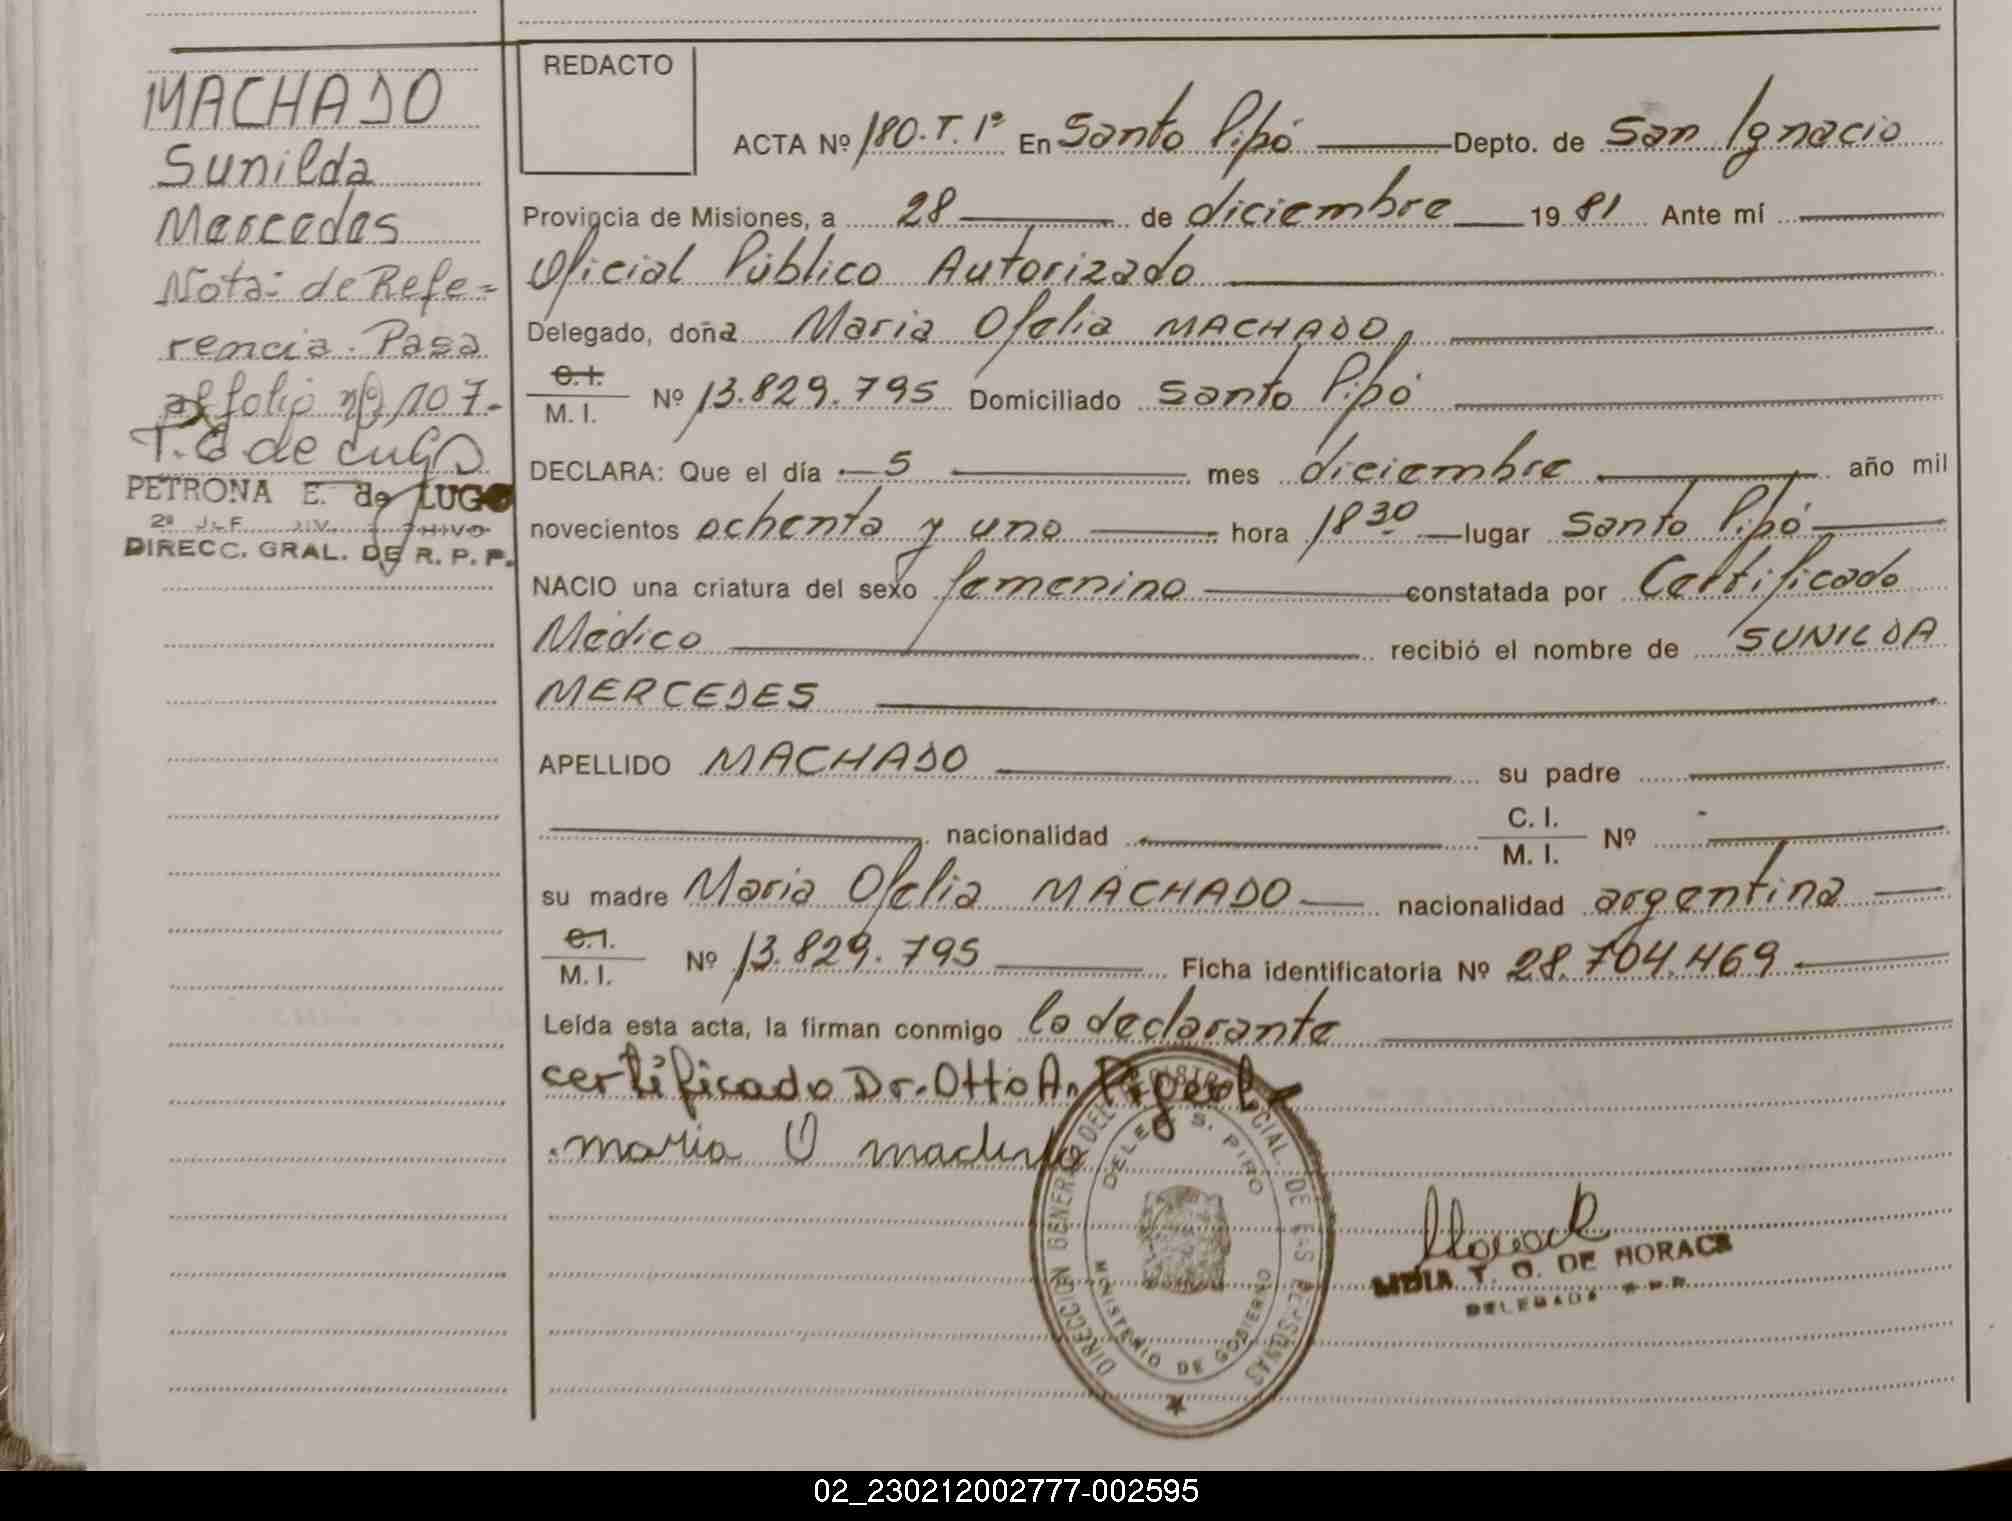 MACHADO
Sunilda
Mercedes
Nota: de Refe=
rencia. Pasa
al folio nº 107.-
T. E de Lugo
PETRONA E. de LUGO
2º J.F. DIV. ARCHIVO
DIRECC. GRAL. DE R. P. P.
REDACTO
ACTA Nº 180. T. 1º En Santo Pipó Depto. de San Ignacio
Provincia de Misiones, a 28 de diciembre 19 81 Ante mí
Oficial Público Autorizado
Delegado, doña Maria Ofelia MACHADO,
C.I.
M. I. Nº 13.829.795 Domiciliado Santo Pipó
DECLARA: Que el día 5 mes diciembre año mil
novecientos ochenta y uno hora 18 30 lugar Santo Pipó
NACIO una criatura del sexo femenino constatada por Certificado
Médico recibió el nombre de SUNILDA
MERCEDES
APELLIDO MACHADO su padre
nacionalidad C. I.
M. I. Nº
su madre Maria Ofelia MACHADO nacionalidad argentina
C.I.
M. I. Nº 13.829.795 Ficha identificatoria Nº 28.704.469
Leída esta acta, la firman conmigo la declarante
certificado Dr. Otto A.
maria O machado
DIRECCION GENERAL DEL REGISTRO PROVINCIAL DE LAS PERSONAS
DELEG. S. PIPO
MINISTERIO DE GOBIERNO
LIDIA T. O. DE HORACK
DELEGADA R.P.P.
02_230212002777-002595